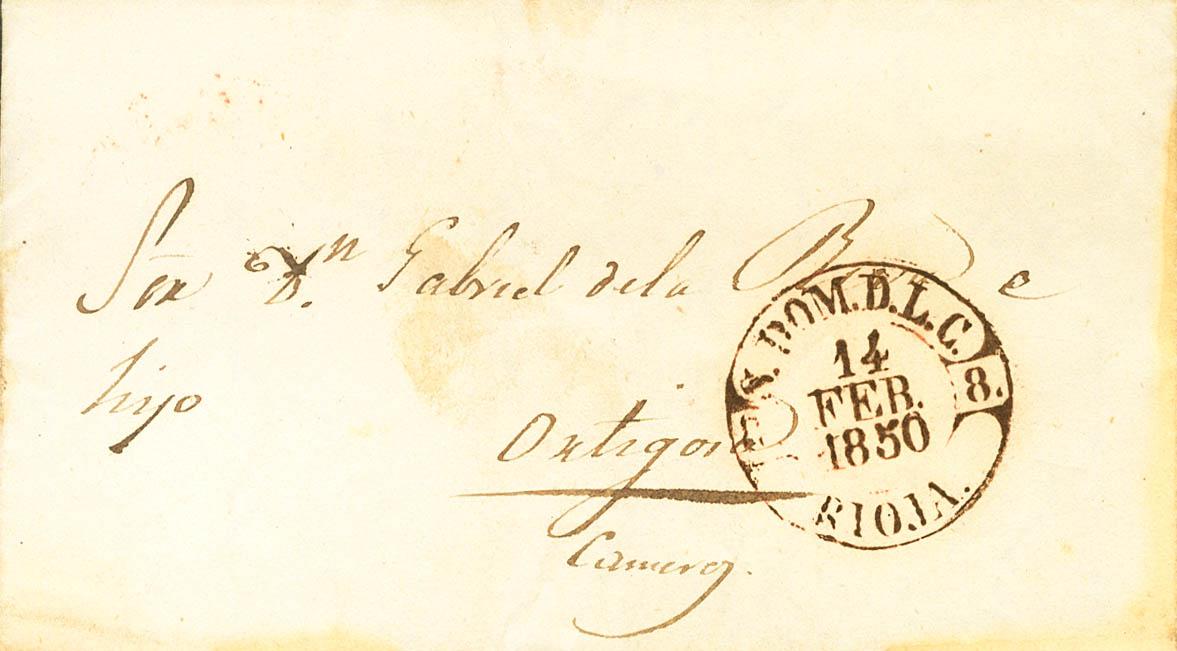 Sor Dn. Gabriel de la e
hijo
Ortigosa
Cameros.
S. DOM. D. L. C. 8.
14
FEB.
1850
RIOJA.